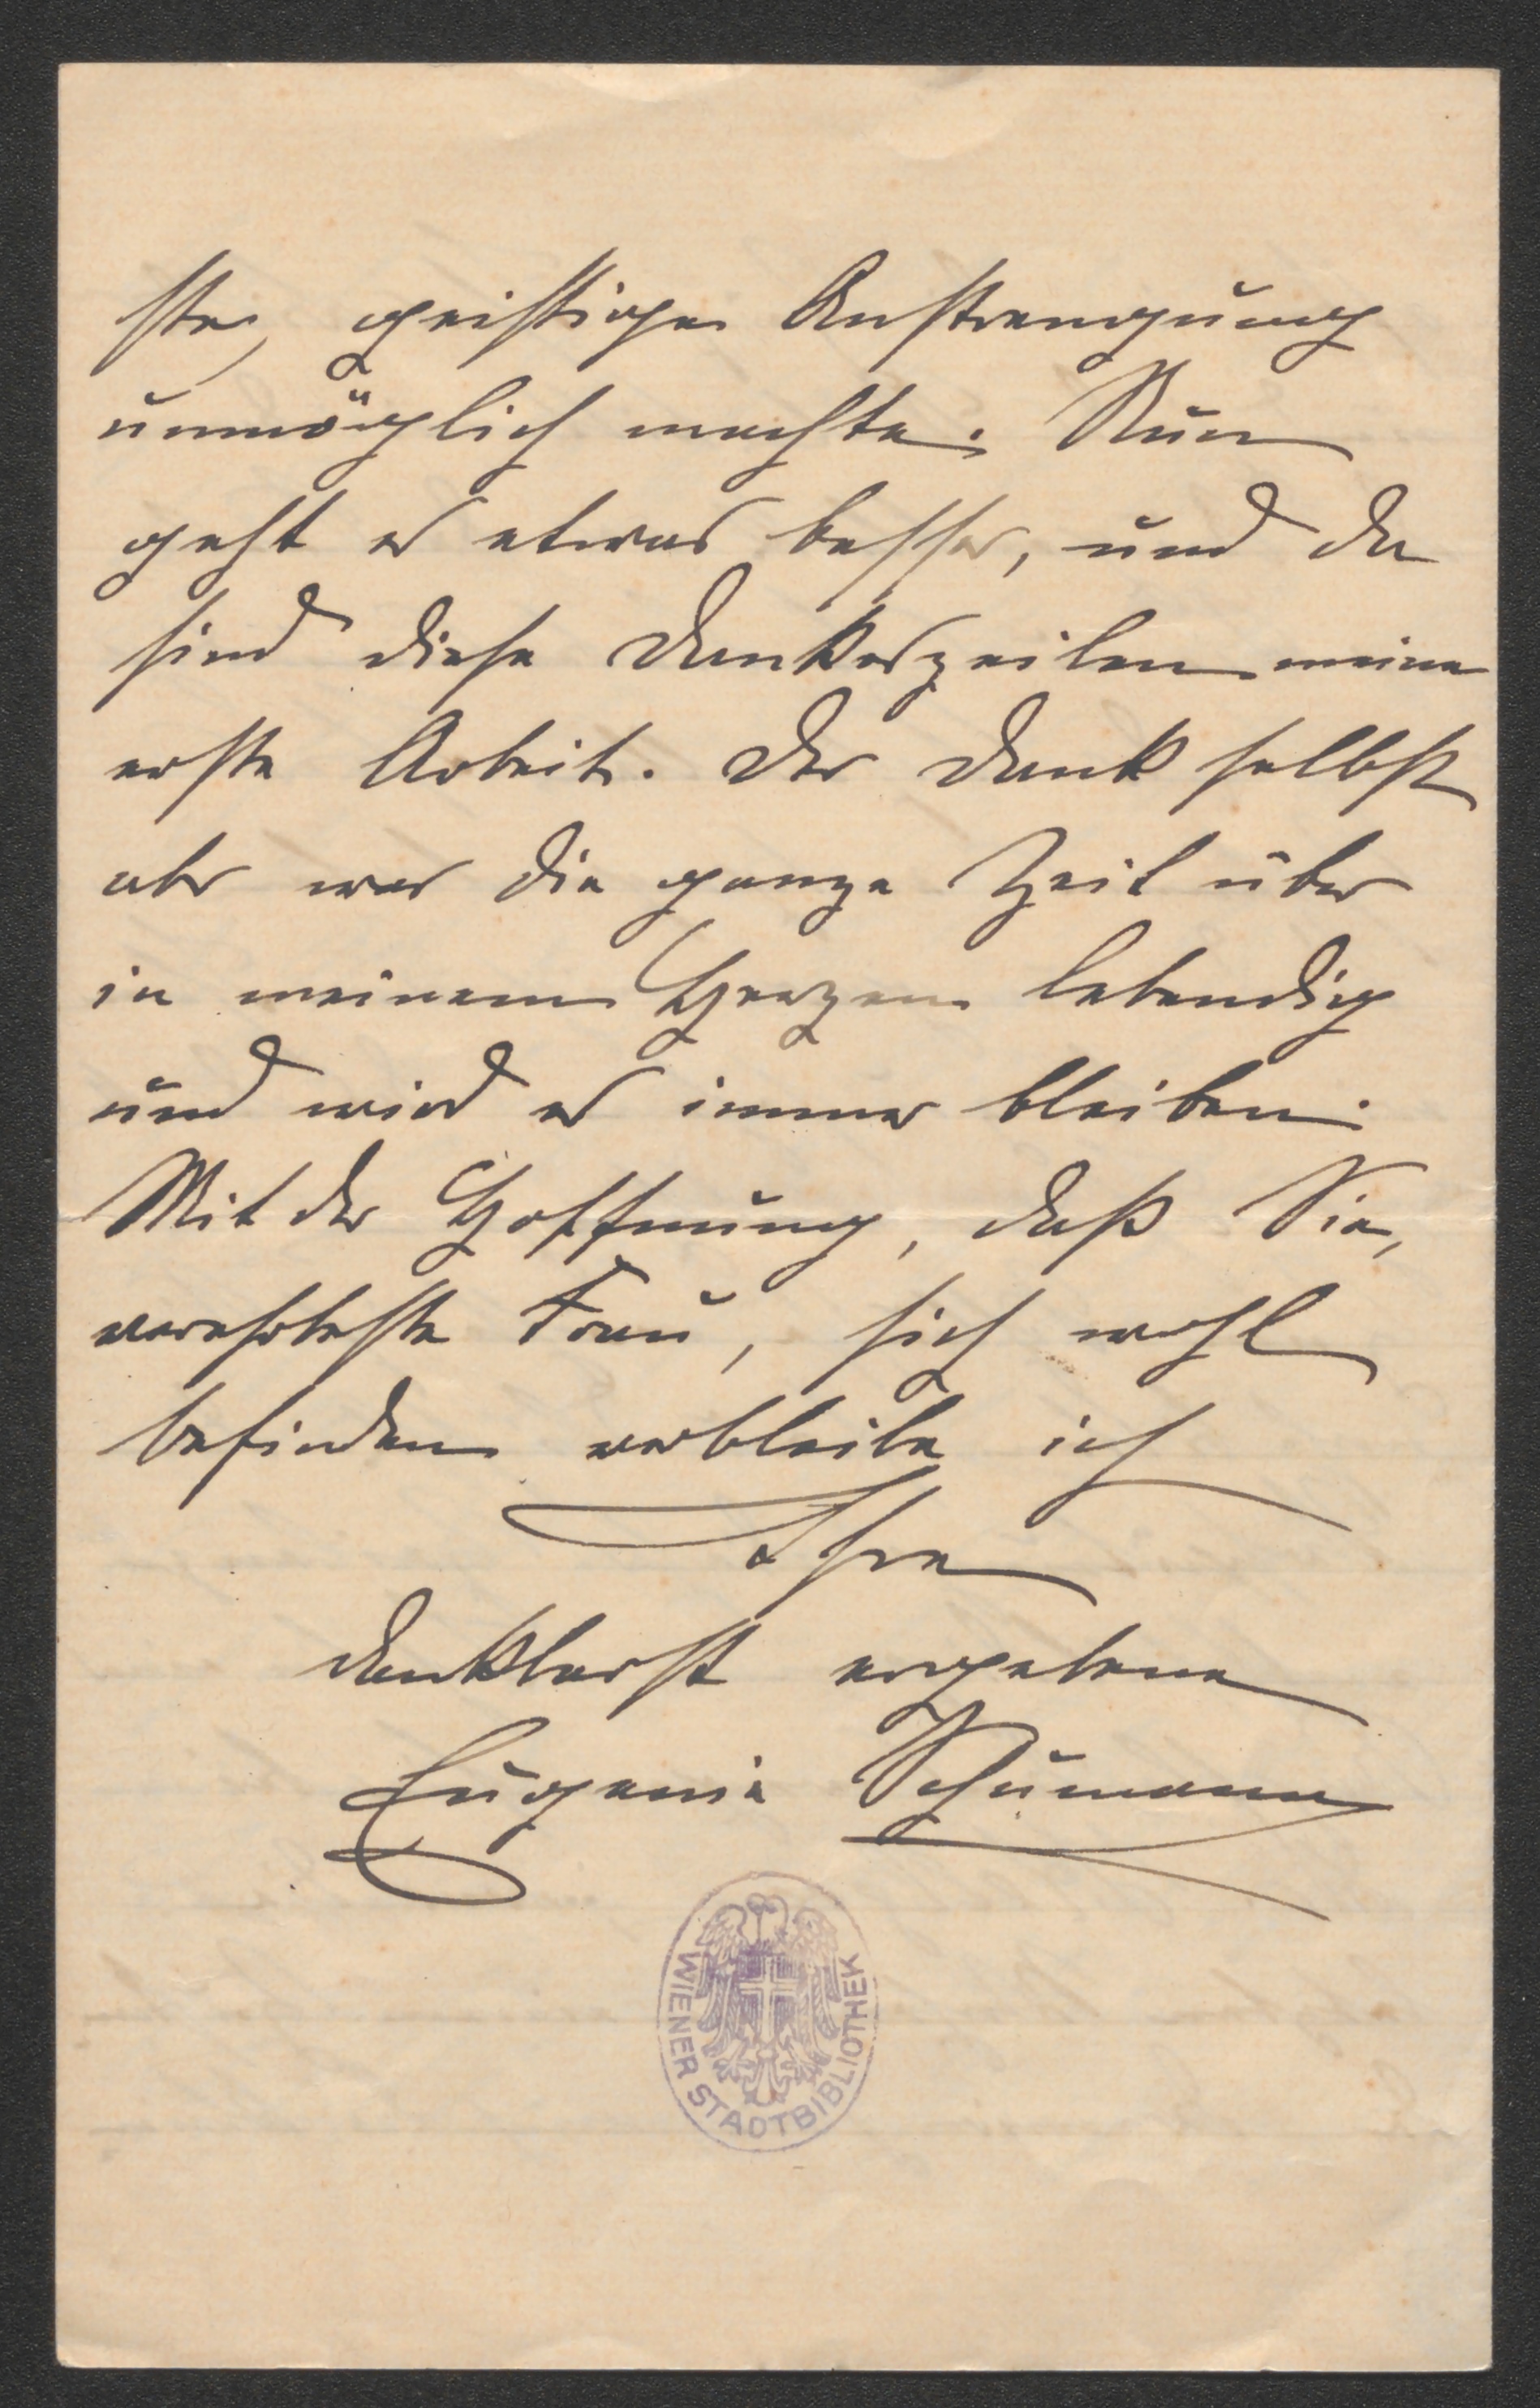 ste, geistige Anstrengung
unmöglich machte. Nun
geht es etwas besser, und da
sind diese Dankeszeilen meine
erste Arbeit. Der Dank selbst
aber war die ganze Zeit über
in meinem Herzen lebendig
und wird es immer bleiben.
Mit der Hoffnung, daß Sie,
verehrteste Frau, sich wohl
befinden verbleibe ich
Ihre
dankbarst ergebene
Eugenie Schumann
WIENER STADTBIBLIOTHEK